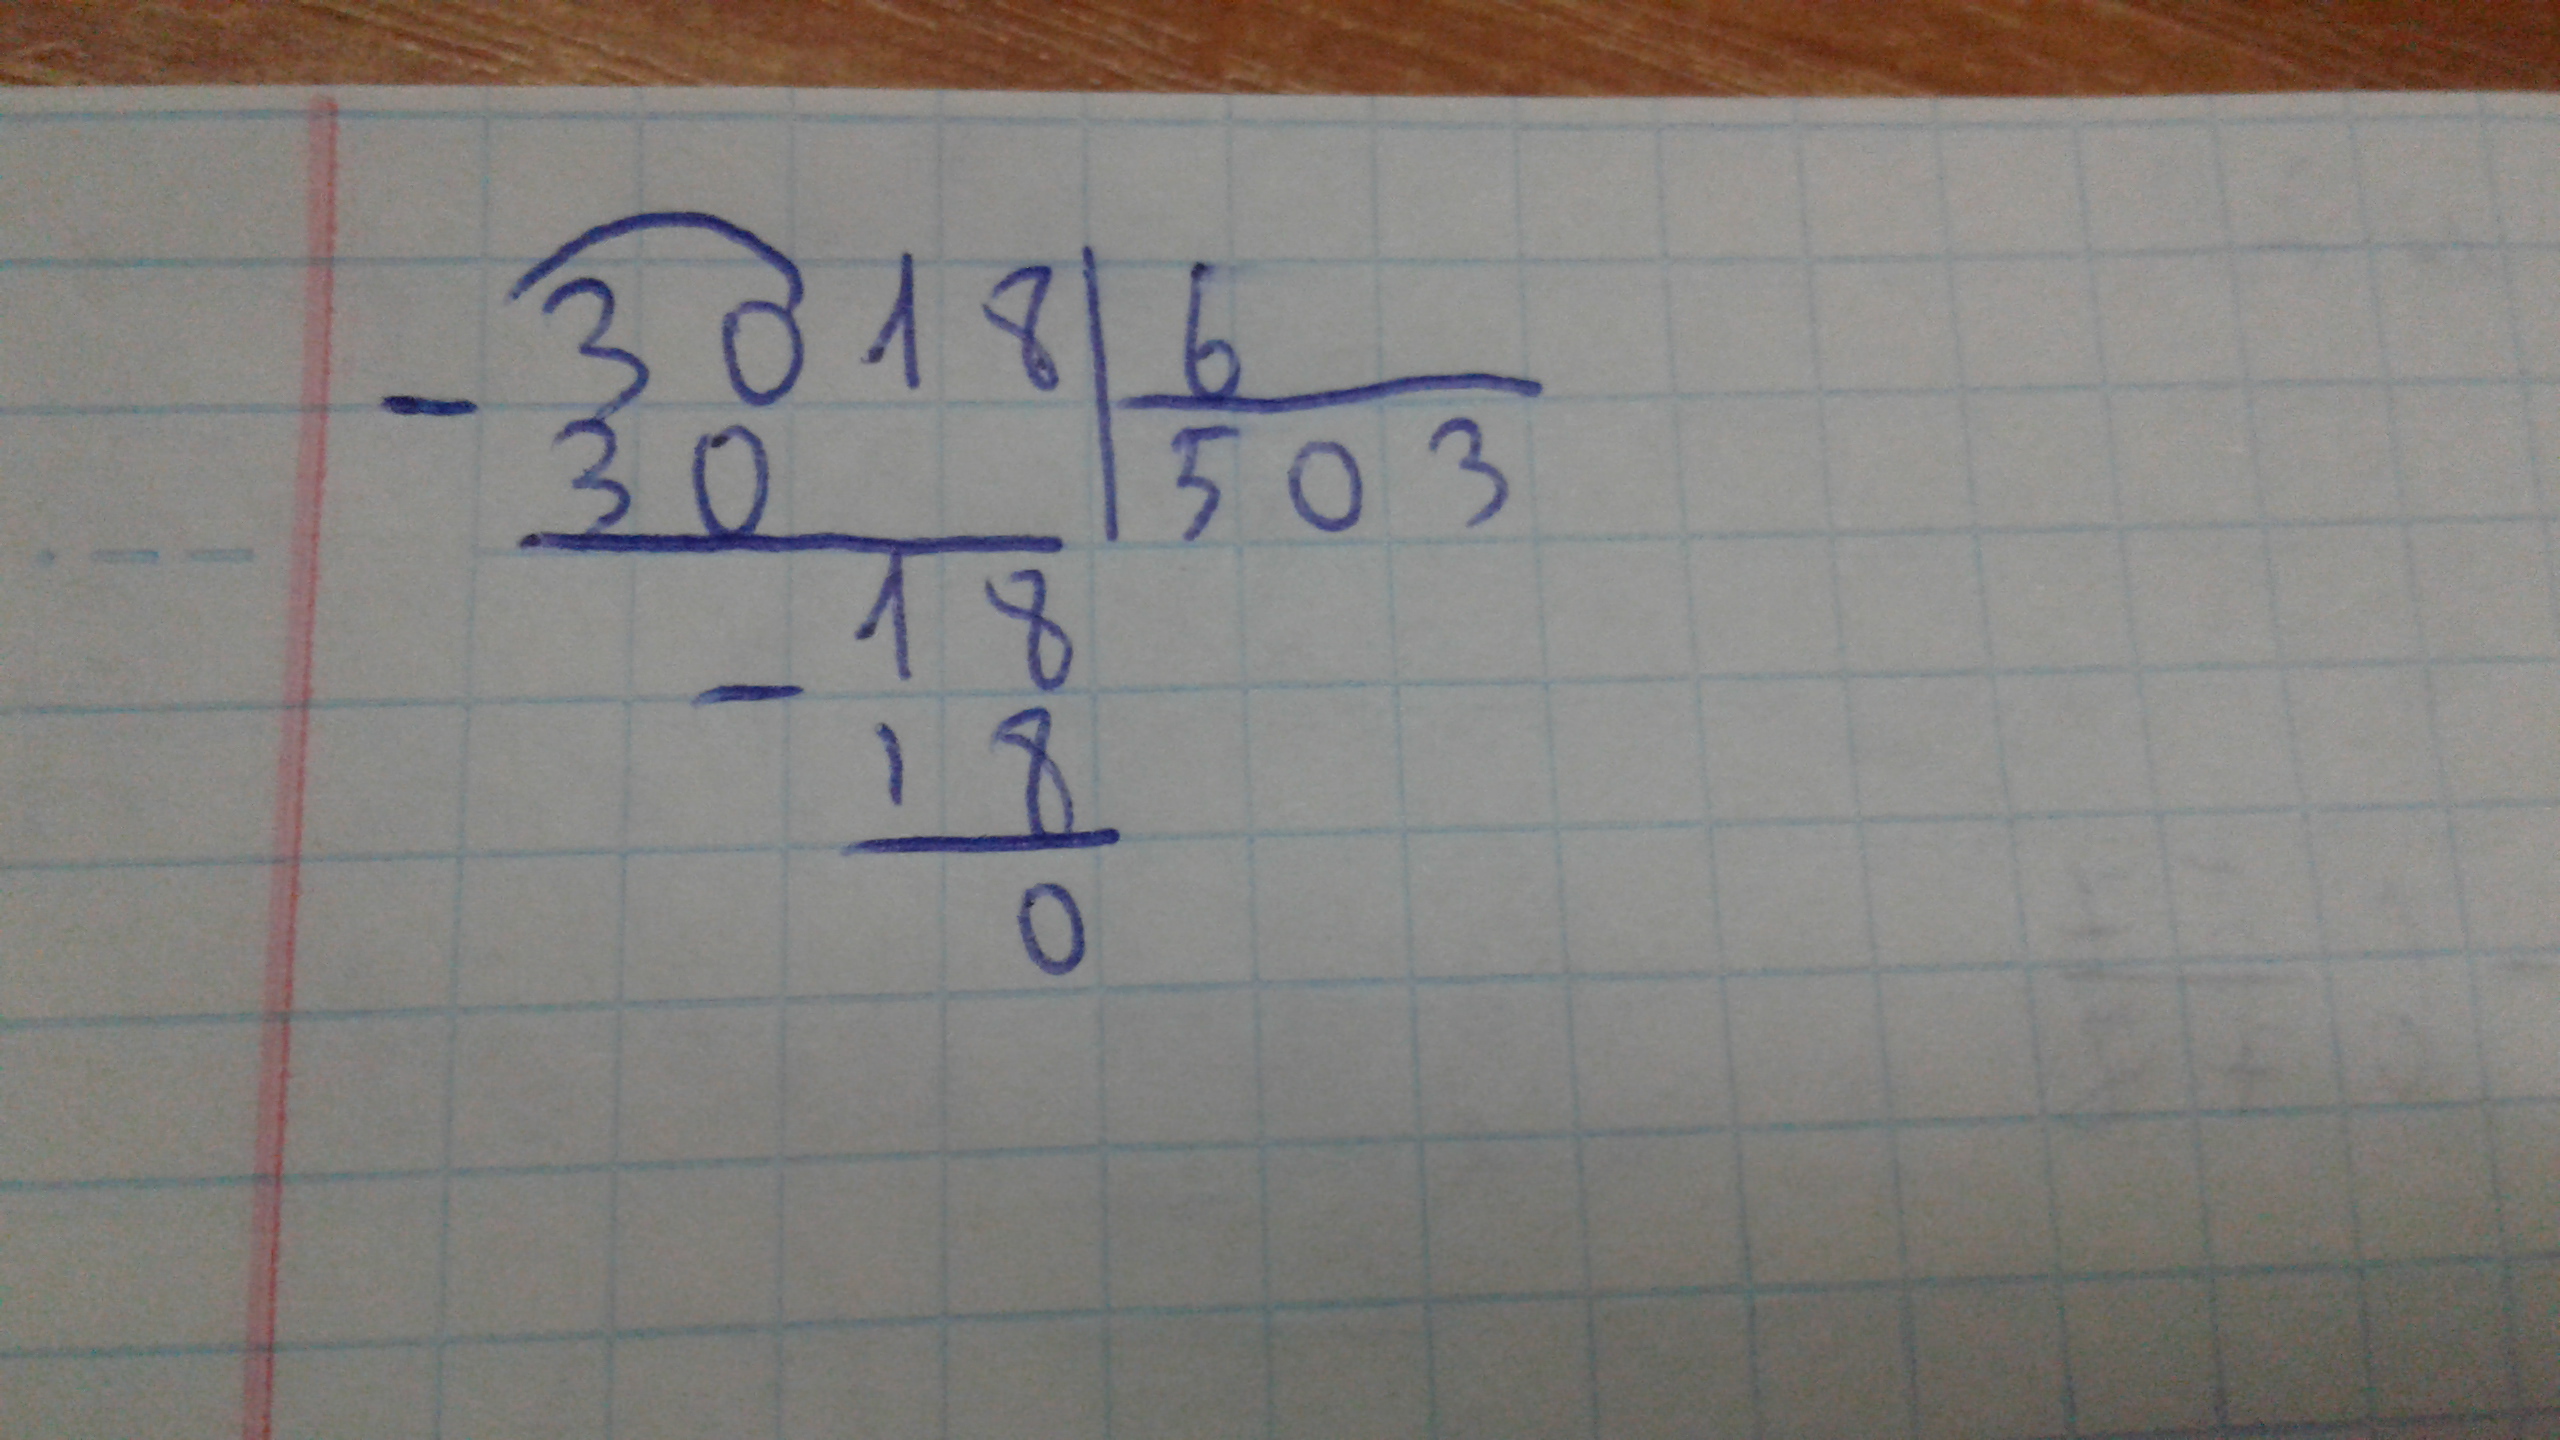 3018 | 6
- 30 | 503
18
- 18
0